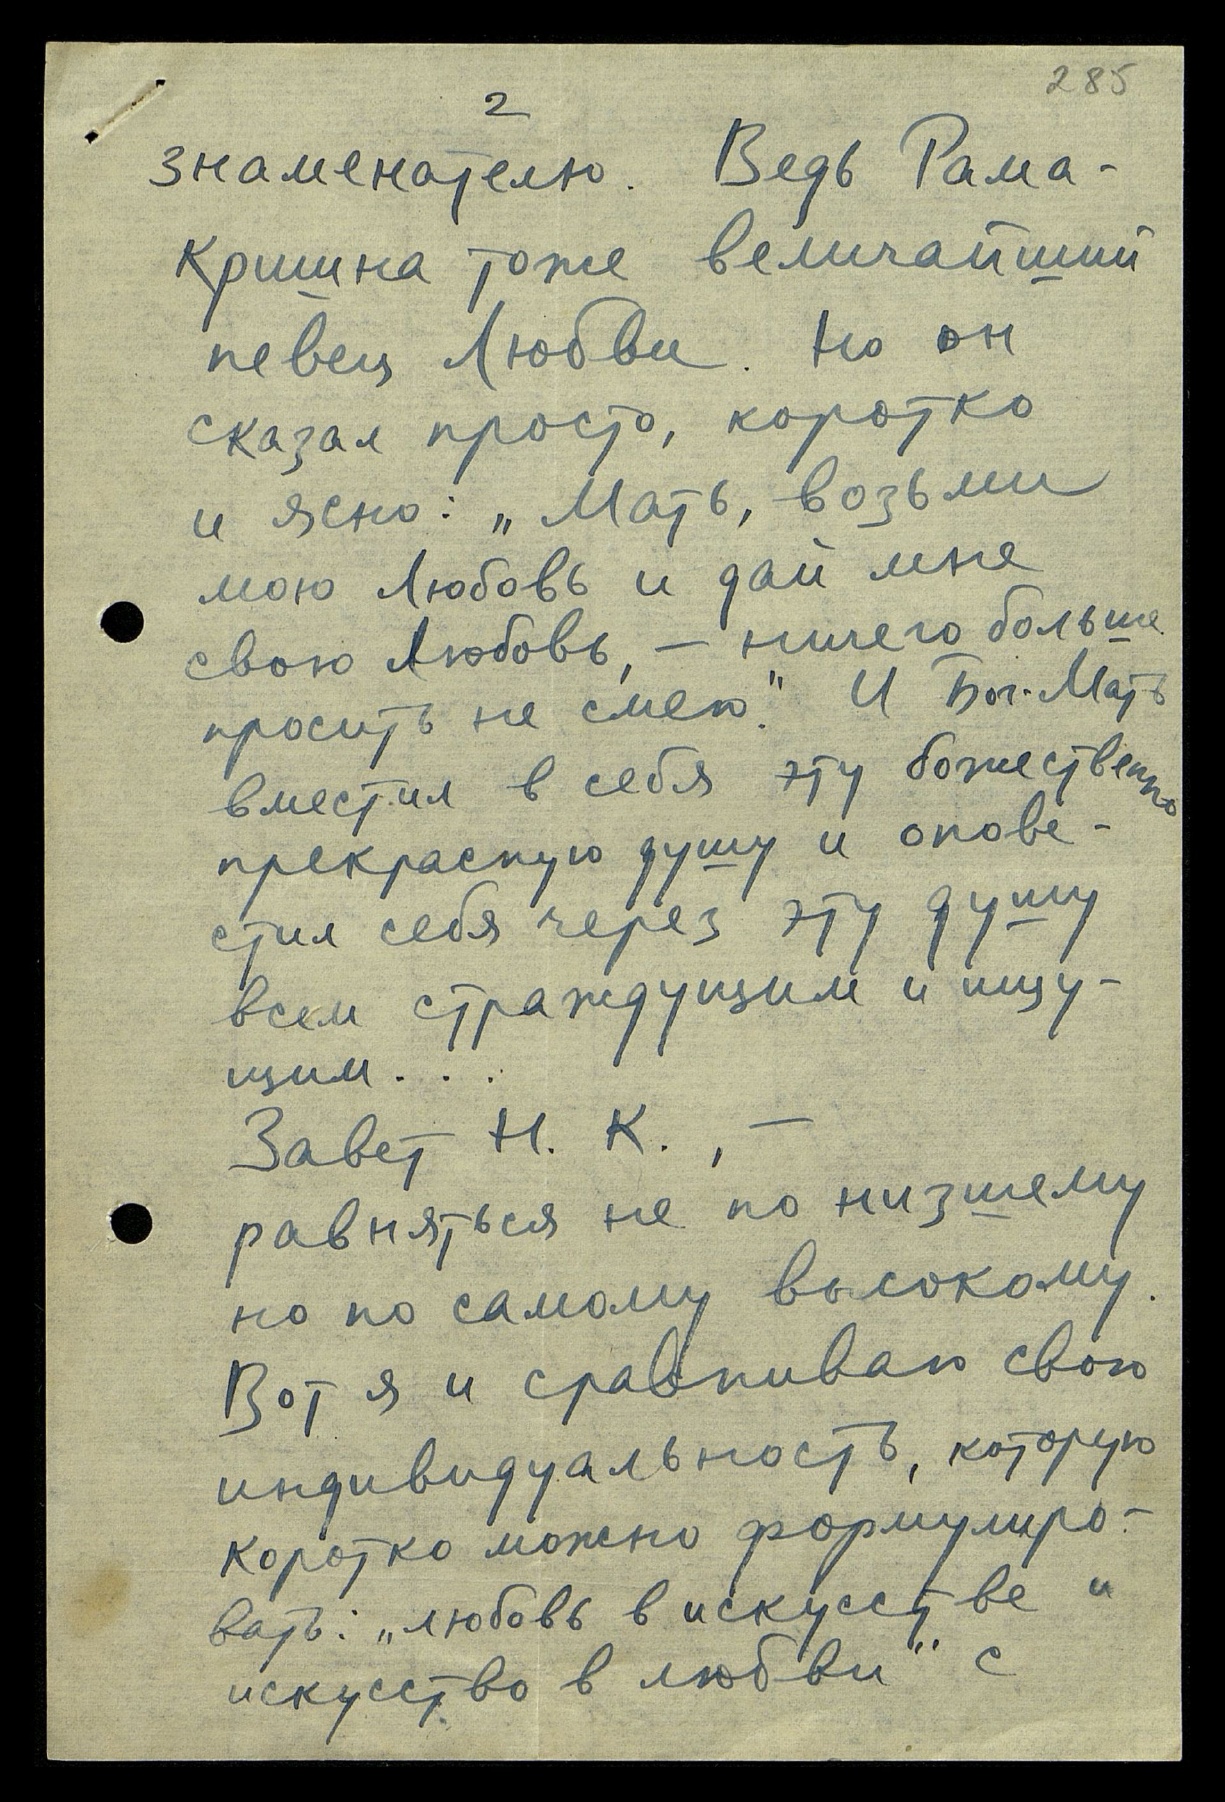 285
2
знаменателю. Ведь Рама-
Кришна тоже величайший
певец Любви. Но он
сказал просто, коротко
и ясно: „Мать, возьми
мою Любовь и дай мне
свою Любовь, – ничего больше
просить не смею." И Бог-Мать
вместил в себя эту божественно
прекрасную душу и опове-
стил себя через эту душу
всем страждущим и ищу-
щим...
Завет Н. К., –
равняться не по низшему
но по самому высокому.
Вот я и сравниваю свою
индивидуальность, которую
коротко можно формулиро-
вать: „любовь в искусстве и
искусство в любви" с